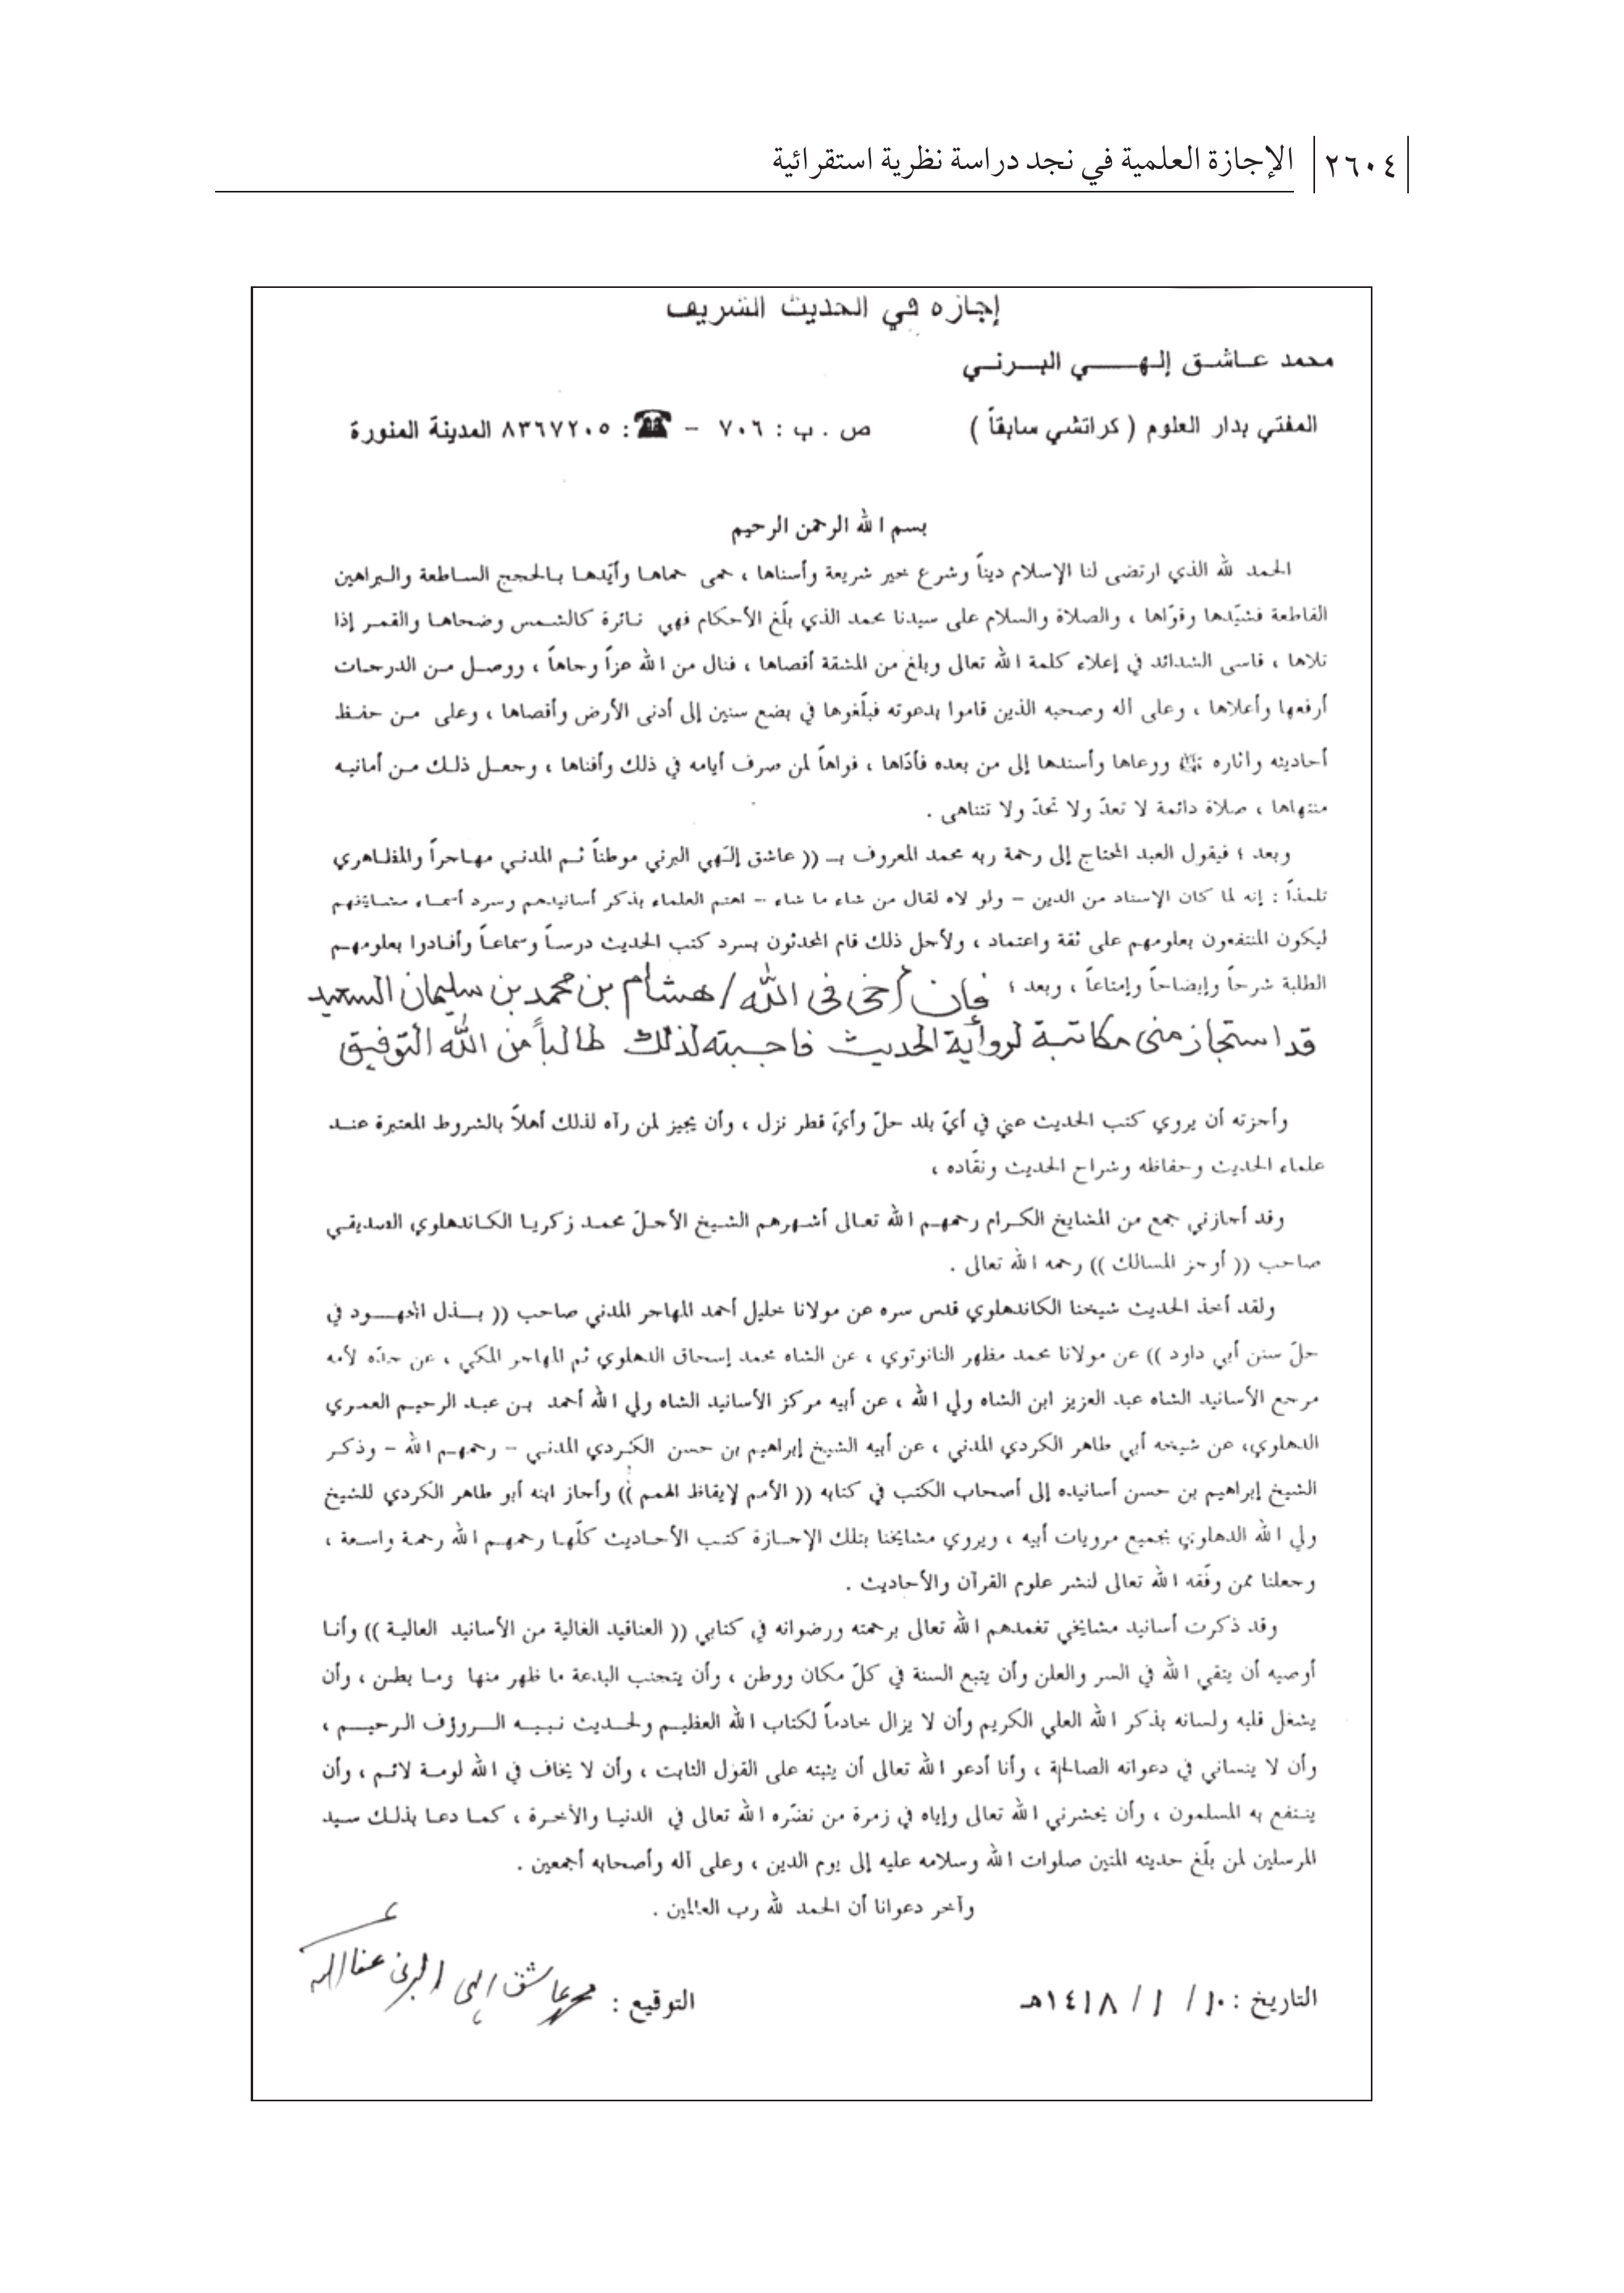 ٢٦٠٤ الإجازة العلمية في نجد دراسة نظرية استقرائية
إجازه في الحديث الشريف
محمد عاشق إلهي البرني
المفتي بدار العلوم ( كراتشي سابقاً ) ص . ب : ٧٠٦ - ☎ : ٨٣٦٧٢٠٥ المدينة المنورة
بسم الله الرحمن الرحيم
الحمد لله الذي ارتضى لنا الإسلام ديناً وشرع خير شريعة وأسناها ، حمى حماها وأيّدها بالحجج الساطعة والبراهين
القاطعة فشيّدها وقوّاها ، والصلاة والسلام على سيدنا محمد الذي بلّغ الأحكام فهي نائرة كالشمس وضحاها والقمر إذا
تلاها ، قاسى الشدائد في إعلاء كلمة الله تعالى وبلغ من المشقة أقصاها ، فنال من الله عزاً وجاهاً ، ووصل من الدرجات
أرفعها وأعلاها ، وعلى آله وصحبه الذين قاموا بدعوته فبلّغوها في بضع سنين إلى أدنى الأرض وأقصاها ، وعلى من حفظ
أحاديثه وآثاره ﷺ ووعاها وأسندها إلى من بعده فأدّاها ، فواهاً لمن صرف أيامه في ذلك وأفناها ، وجعل ذلك من أمانيه
منتهاها ، صلاة دائمة لا تعدّ ولا تحدّ ولا تتناهى .
وبعد ؛ فيقول العبد المحتاج إلى رحمة ربه محمد المعروف بـ (( عاشق إلهي البرني موطناً ثم المدني مهاجراً والمظاهري
تلمذاً : إنه لما كان الإسناد من الدين – ولو لاه لقال من شاء ما شاء – اهتم العلماء بذكر أسانيدهم وسرد أسماء مشايخهم
ليكون المنتفعون بعلومهم على ثقة واعتماد ، ولأجل ذلك قام المحدثون بسرد كتب الحديث درساً وسماعاً وأفادوا بعلومهم
الطلبة شرحاً وإيضاحاً وإمتاعاً ، وبعد ؛ فإن أخي في الله / هشام بن محمد بن سليمان السعيد
قد استجاز مني مكاتبة لرواية الحديث فأجبته لذلك طالباً من الله التوفيق
وأجزته أن يروي كتب الحديث عني في أيّ بلد حلّ وأيّ قطر نزل ، وأن يجيز لمن رآه لذلك أهلاً بالشروط المعتبرة عند
علماء الحديث وحفاظه وشراح الحديث ونقّاده ،
وقد أجازني جمع من المشايخ الكرام رحمهم الله تعالى أشهرهم الشيخ الأجلّ محمد زكريا الكاندهلوي الصديقي
صاحب (( أوجز المسالك )) رحمه الله تعالى .
ولقد أخذ الحديث شيخنا الكاندهلوي قدس سره عن مولانا خليل أحمد المهاجر المدني صاحب (( بذل المجهود في
حلّ سنن أبي داود )) عن مولانا محمد مظهر النانوتوي ، عن الشاه محمد إسحاق الدهلوي ثم المهاجر المكي ، عن جدّه لأمه
مرجع الأسانيد الشاه عبد العزيز ابن الشاه ولي الله ، عن أبيه مركز الأسانيد الشاه ولي الله أحمد بن عبد الرحيم العمري
الدهلوي، عن شيخه أبي طاهر الكردي المدني ، عن أبيه الشيخ إبراهيم بن حسن الكردي المدني – رحمهم الله – وذكر
الشيخ إبراهيم بن حسن أسانيده إلى أصحاب الكتب في كتابه (( الأمم لإيقاظ الهمم )) وأجاز ابنه أبو طاهر الكردي للشيخ
ولي الله الدهلوي بجميع مرويات أبيه ، ويروي مشايخنا بتلك الإجازة كتب الأحاديث كلّها رحمهم الله رحمة واسعة ،
وجعلنا ممن وفّقه الله تعالى لنشر علوم القرآن والأحاديث .
وقد ذكرت أسانيد مشايخي تغمدهم الله تعالى برحمته ورضوانه في كتابي (( العناقيد الغالية من الأسانيد العالية )) وأنا
أوصيه أن يتقي الله في السر والعلن وأن يتبع السنة في كلّ مكان ووطن ، وأن يتجنب البدعة ما ظهر منها وما بطن ، وأن
يشغل قلبه ولسانه بذكر الله العلي الكريم وأن لا يزال خادماً لكتاب الله العظيم ولحديث نبيه الروؤف الرحيم ،
وأن لا ينساني في دعواته الصالحة ، وأنا أدعو الله تعالى أن يثبته على القول الثابت ، وأن لا يخاف في الله لومة لائم ، وأن
ينتفع به المسلمون ، وأن يحشرني الله تعالى وإياه في زمرة من نضّره الله تعالى في الدنيا والآخرة ، كما دعا بذلك سيد
المرسلين لمن بلّغ حديثه المتين صلوات الله وسلامه عليه إلى يوم الدين ، وعلى آله وأصحابه أجمعين .
وآخر دعوانا أن الحمد لله رب العالمين .
التاريخ : ١٠ / ١ / ١٤١٨هـ التوقيع : محمد عاشق إلهي البرني عفا الله